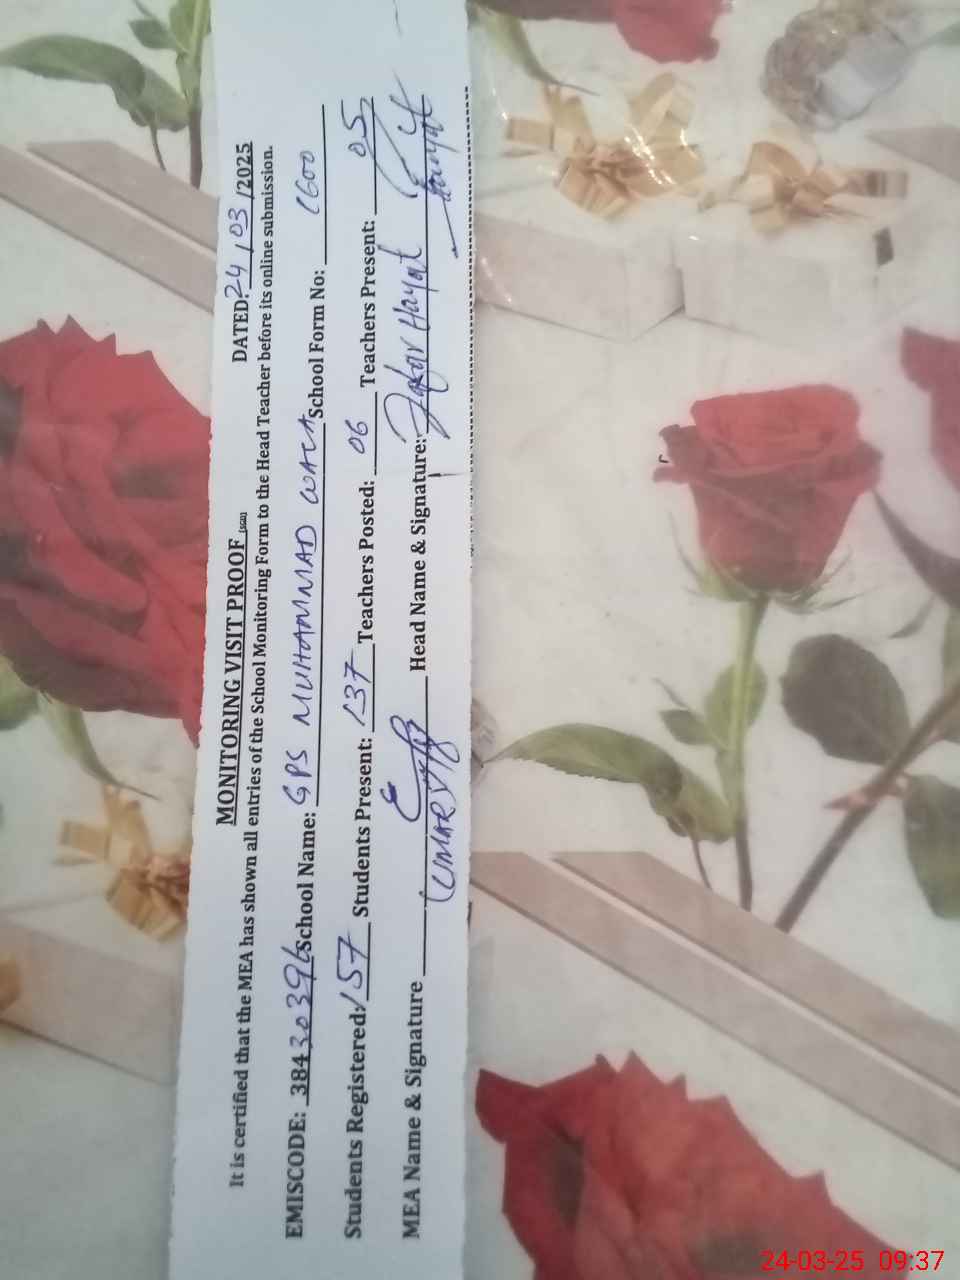 MONITORING VISIT PROOF (SGD) DATED: 24/03/2025
It is certified that the MEA has shown all entries of the School Monitoring Form to the Head Teacher before its online submission.
EMISCODE: 38430396 School Name: GPS MUHAMMAD WALA School Form No: 1600
Students Registered: 157 Students Present: 137 Teachers Posted: 06 Teachers Present: 05
MEA Name & Signature Head Name & Signature: Zafar Hayat
24-03-25 09:37